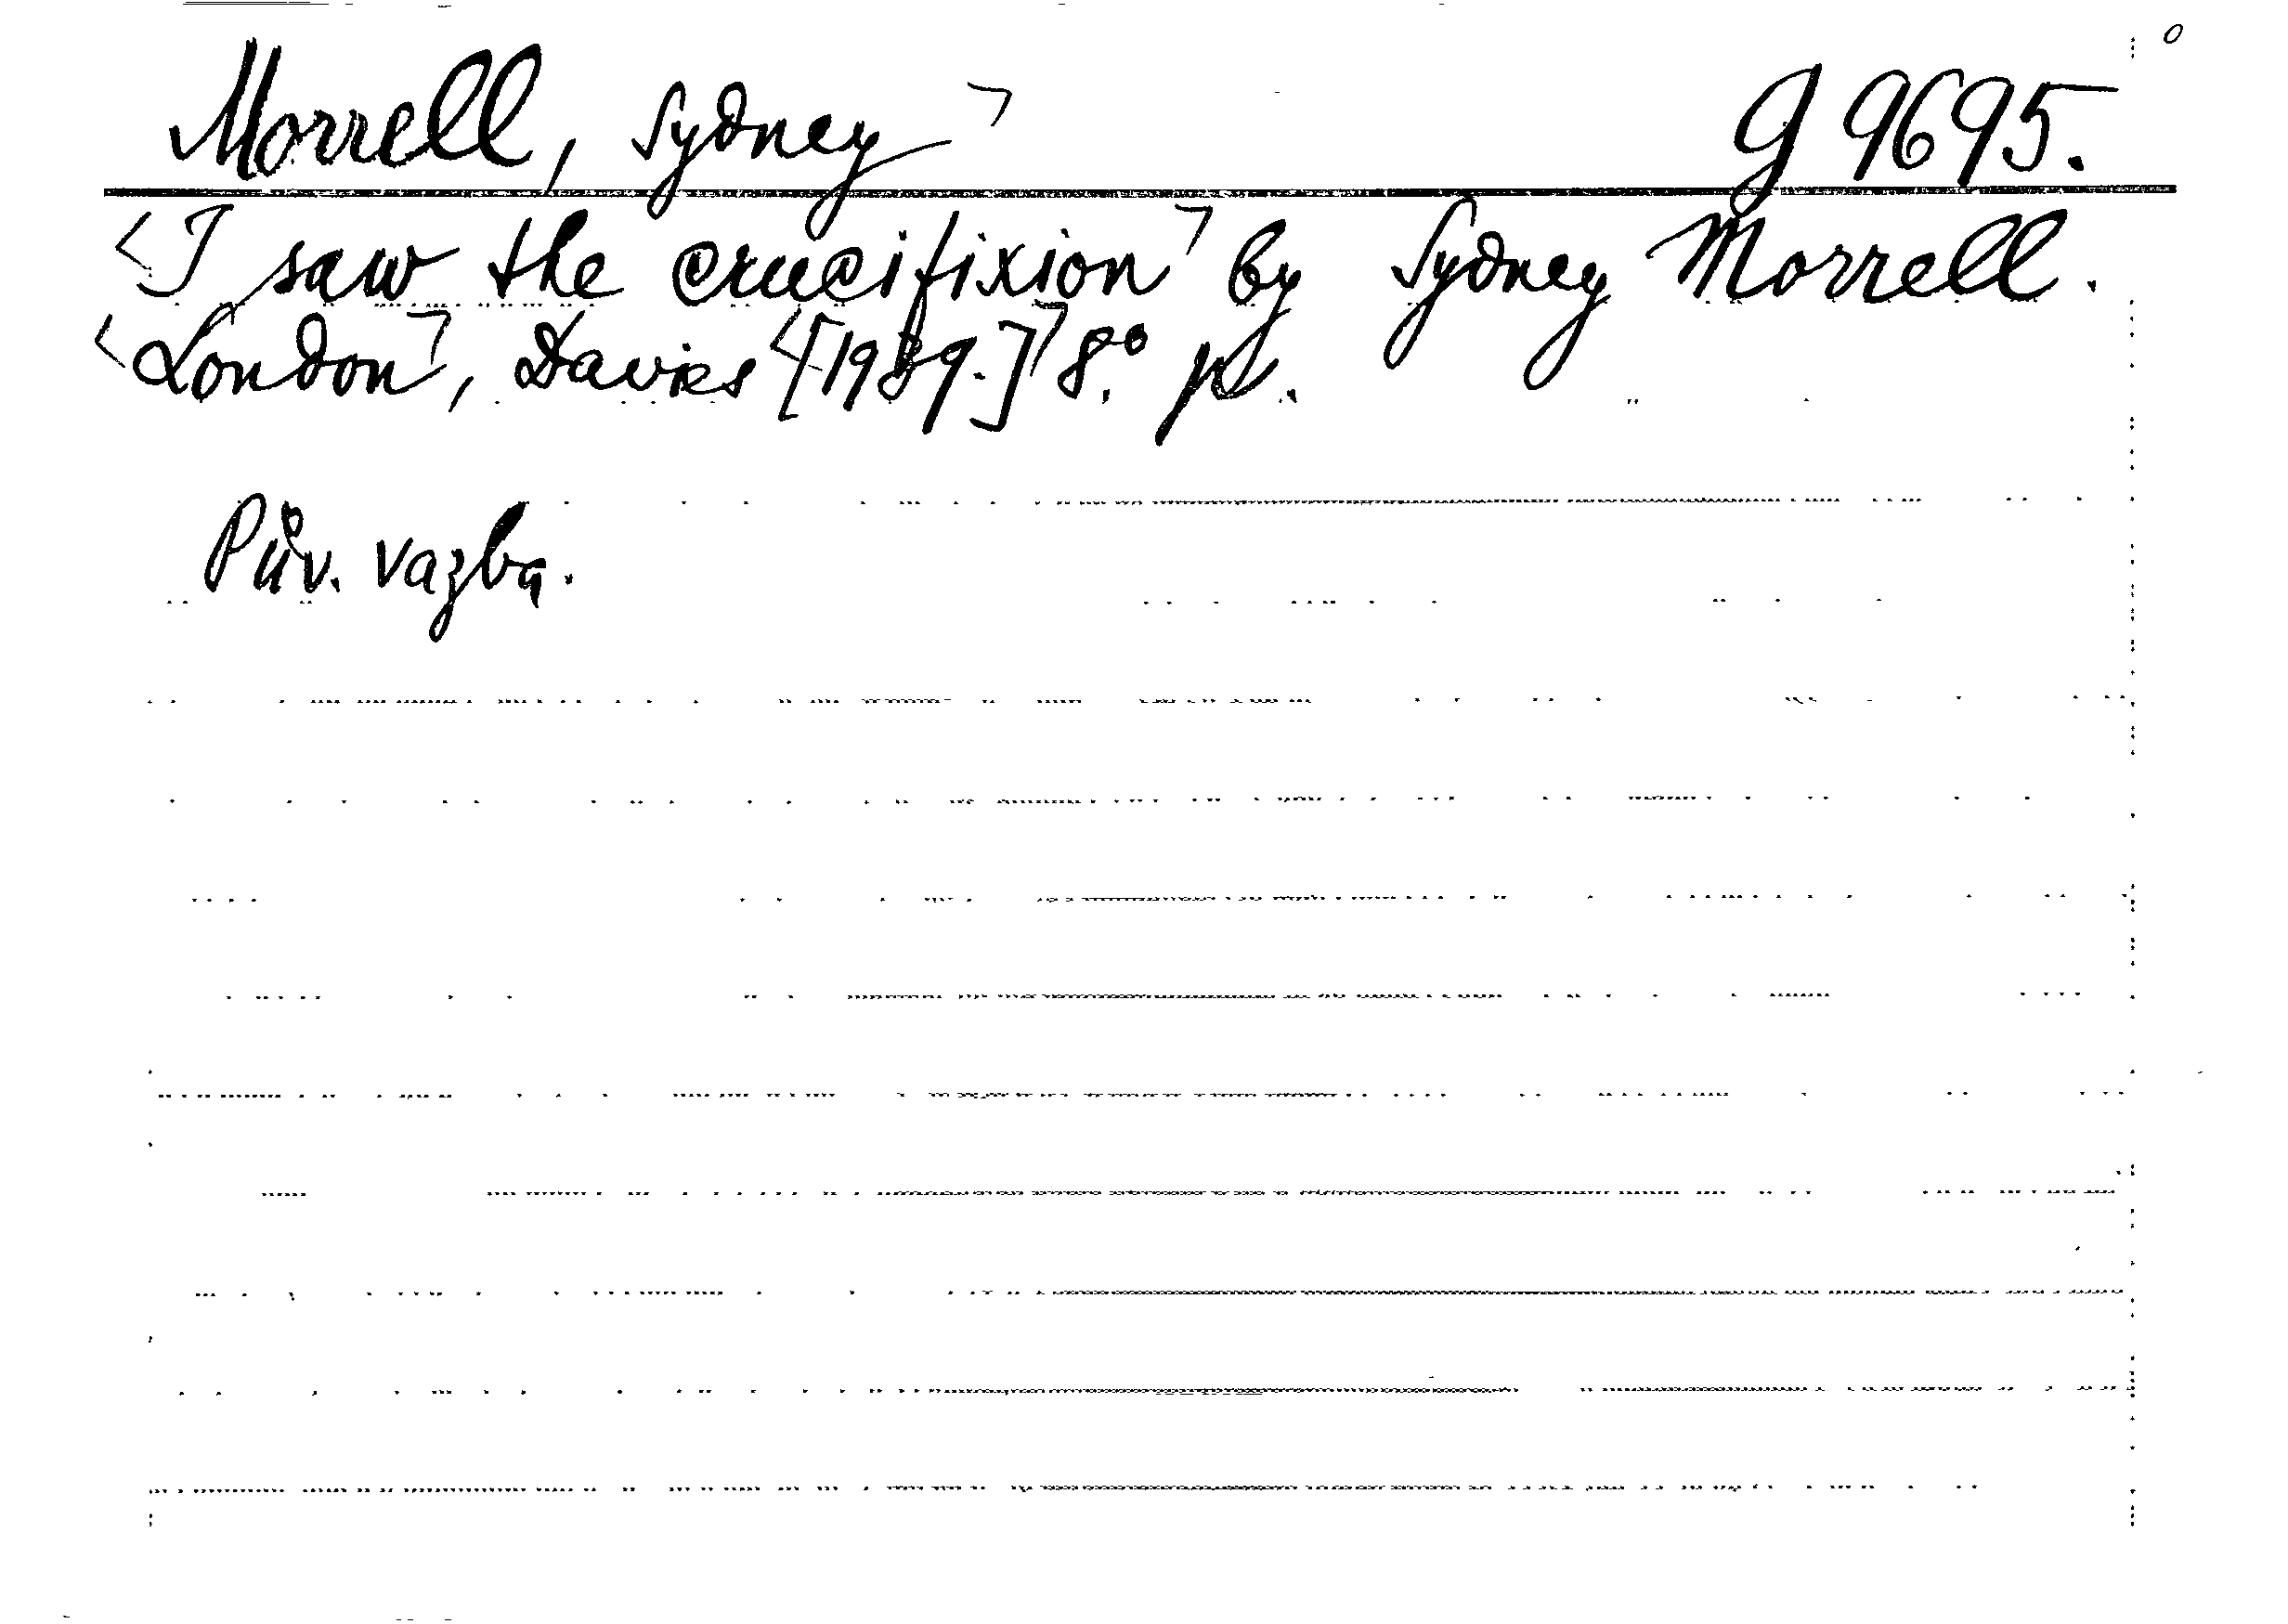 Morrell, Sydney ㄱ g 9695.
<I saw the crucifixionㄱ by Sydney Morrell.
<Londonㄱ, Davies <[1939.]ㄱ 8.°
Pův. vazba.